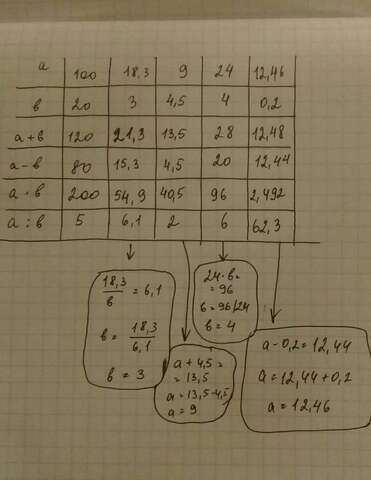 а 100 18,3 9 24 12,46
в 20 3 4,5 4 0,2
а+в 120 21,3 13,5 28 12,48
а-в 80 15,3 4,5 20 12,44
а·в 200 54,9 40,5 96 2,492
а:в 5 6,1 2 6 62,3
18,3/в = 6,1
в = 18,3/6,1
в = 3
а + 4,5 =
= 13,5
а = 13,5-4,5
а = 9
24·в=
= 96
в = 96/24
в = 4
а - 0,2 = 12,44
а = 12,44 + 0,2
а = 12,46